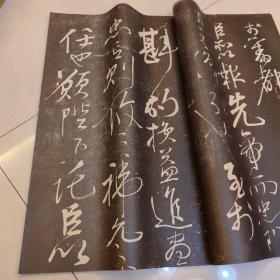 於舊都
臣所以報先帝而忠
至於
斟酌損益進盡
忠言則攸之褘允之
任也願陛下託臣以